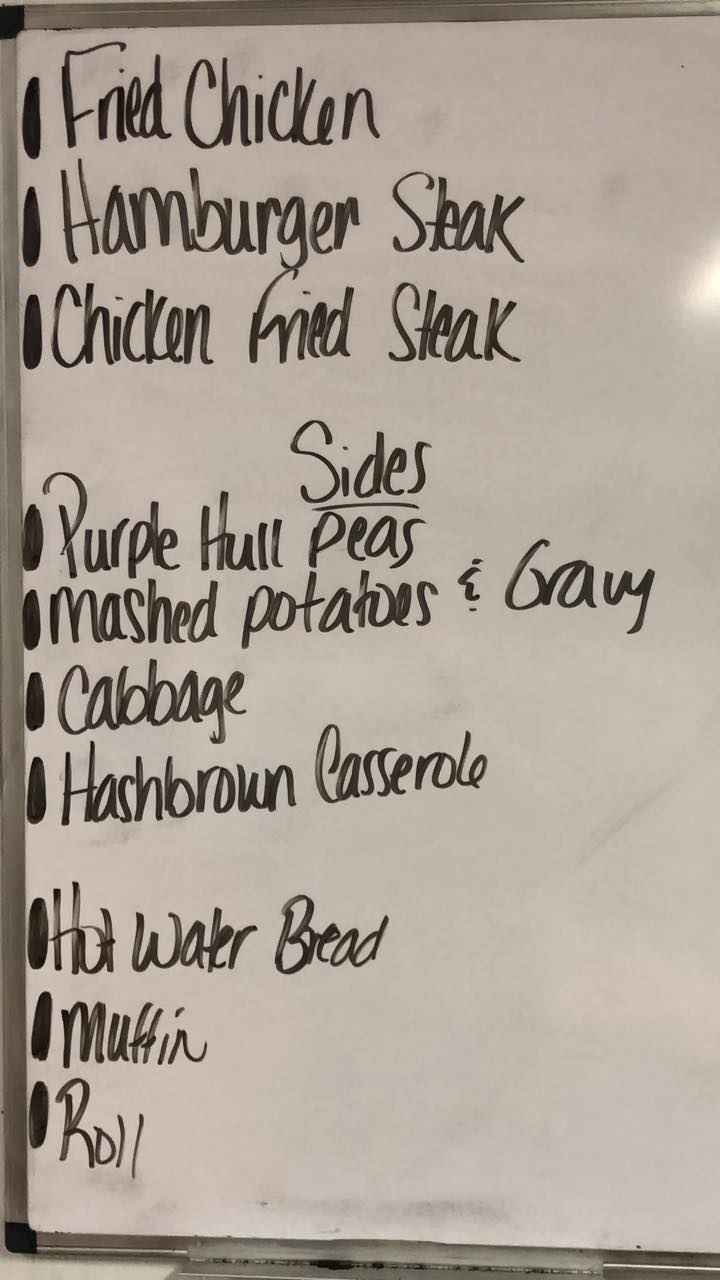 Fried Chicken
Hamburger Steak
Chicken Fried Steak
Sides
Purple Hull Peas
Mashed potatoes & Gravy
Cabbage
Hashbrown Casserole
Hot Water Bread
Muffin
Roll